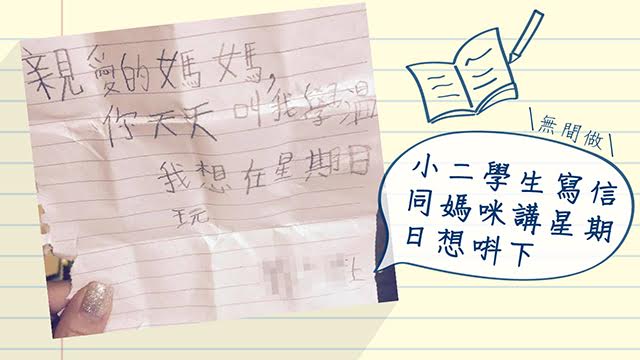 親愛的媽媽,
你天天叫我學温
我想在星期日
玩
上
\無間做/
小二學生寫信
同媽咪講星期
日想唞下